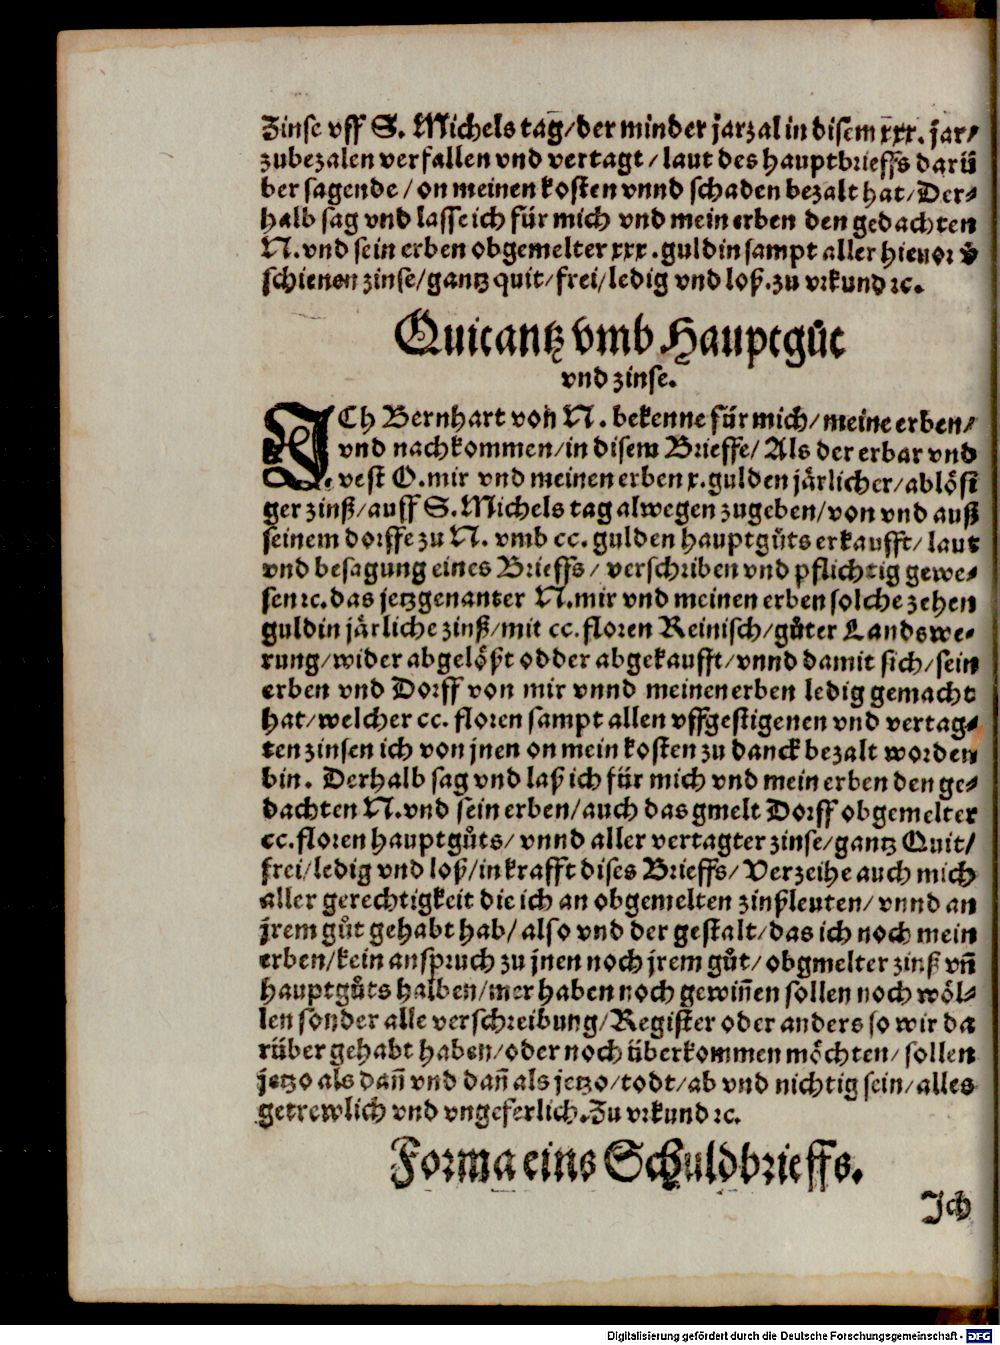 Zinse vff S. Michels tag/der minder jarzal in disem xxx. jar/
zubezalen verfallen vnd vertagt/laut des hauptbrieffs darü
ber sagende/on meinen kosten vnnd schaden bezalt hat/Der⸗
halb sag vnd lasse ich für mich vnd mein erben den gedachten
N.vnd sein erben obgemelter xxx.guldin sampt aller hieuor v̄
schienen zinse/gantz quit/frei/ledig vnd loß.zu vrkund ꝛc.
Quitantz vmb Hauptgůt
vnd zinse.
ICh Bernhart von N. bekenne für mich/meine erben/
vnd nachkommen/in disem Brieffe/Als der erbar vnd
vest O.mir vnd meinen erben x.gulden järlicher/ablösi
ger zinß/auff S.Michels tag alwegen zugeben/von vnd auß
seinem dorffe zu N. vmb cc. gulden hauptgůts erkaufft/laut
vnd besagung eines Brieffs/verschriben vnd pflichtig gewe⸗
sen ꝛc.das jetzgenanter N.mir vnd meinen erben solche zehen
guldin järliche zinß/mit cc.floren Reinisch/gůter Landswe⸗
rung/wider abgelößt odder abgekaufft/vnnd damit sich/sein
erben vnd Dorff von mir vnnd meinen erben ledig gemacht
hat/welcher cc. floren sampt allen vffgestigenen vnd vertag⸗
ten zinsen ich von jnen on mein kosten zu danck bezalt worden
bin. Derhalb sag vnd laß ich für mich vnd mein erben den ge⸗
dachten N.vnd sein erben/auch das gmelt Dorff obgemelter
cc.floren hauptgůts/vnnd aller vertagter zinse/gantz Quit/
frei/ledig vnd loß/in krafft dises Brieffs/Verzeihe auch mich
aller gerechtigkeit die ich an obgemelten zinßleuten/vnnd an
jrem gůt gehabt hab/also vnd der gestalt/das ich noch mein
erben/kein anspruch zu jnen noch jrem gůt/obgmelter zinß vn̄
hauptgůts halben/mer haben noch gewiñen sollen noch wöl⸗
len sonder alle verschreibung/Register oder anders so wir da
rüber gehabt haben/oder noch überkommen möchten/sollen
jetzo als dañ vnd dañ als jetzo/todt/ab vnd nichtig sein/alles
getrewlich vnd vngeferlich.Zu vrkund ꝛc.
Forma eins Schuldbrieffs.
Ich
Digitalisierung gefördert durch die Deutsche Forschungsgemeinschaft - DFG